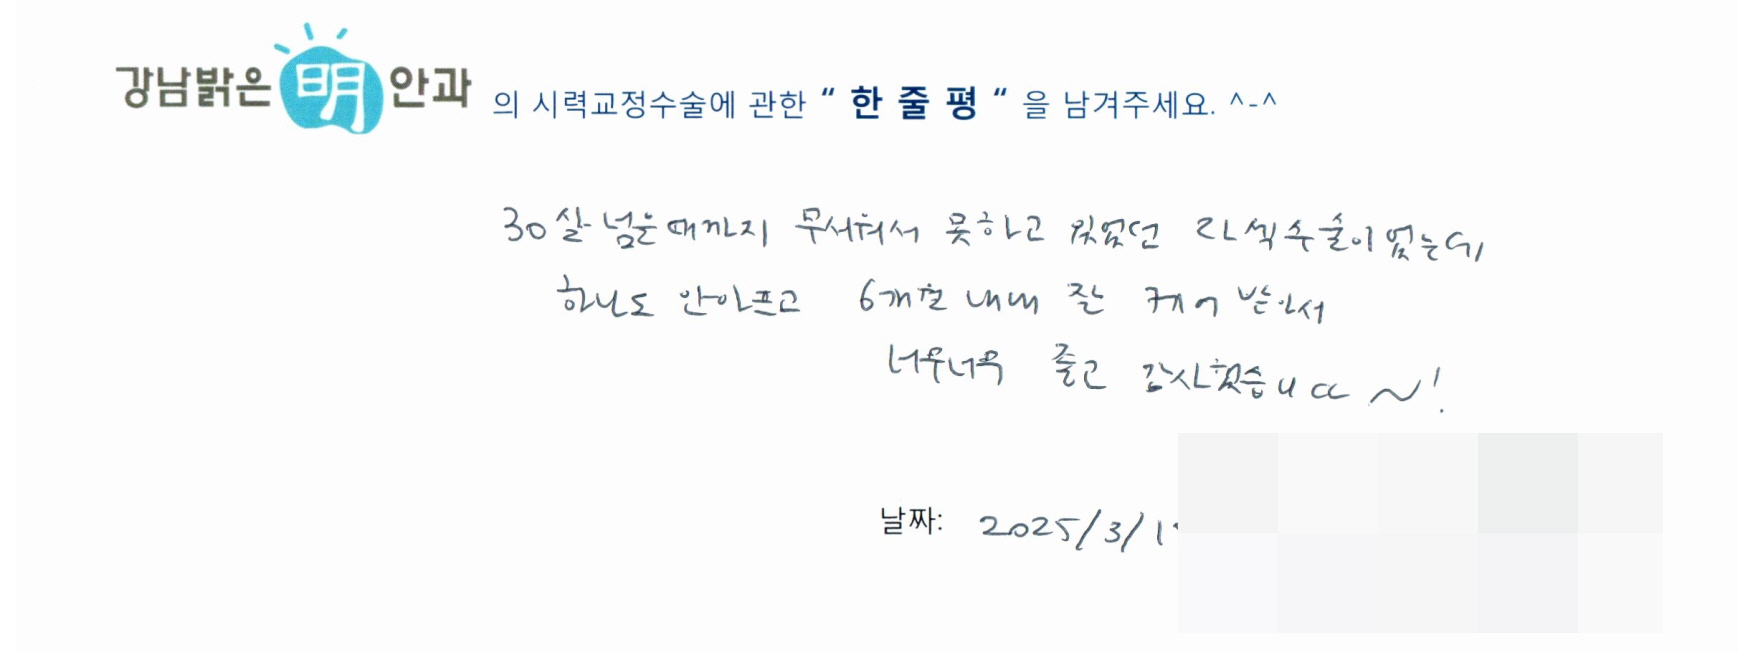 강남밝은明안과 의 시력교정수술에 관한 “ 한 줄 평 “ 을 남겨주세요. ^-^
30살 넘을때까지 무서워서 못하고 있었던 라식수술이었는데
하나도 안아프고 6개월 내내 잘 케어 받아서
너무너무 좋고 감사했습니다 ~!
날짜: 2025/3/1